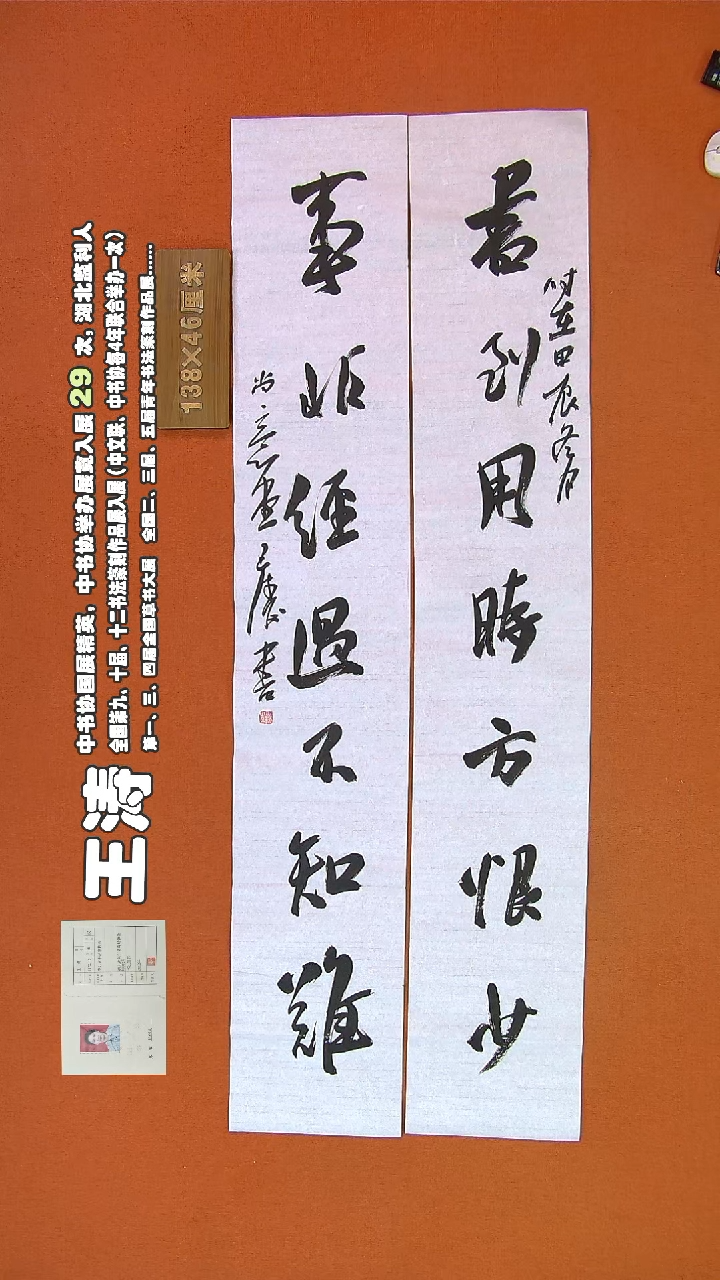 書到用時方恨少
时在甲辰冬月
事非經過不知難
尚意
書
138×46厘米
王涛
中书协国展精英，中书协举办展赛入展 29 次，湖北监利人
全国第九、十届、十二书法篆刻作品展入展（中文联、中书协每4年联合举办一次）
第一、三、四届全国草书大展 全国二、三届、五届青年书法篆刻作品展......